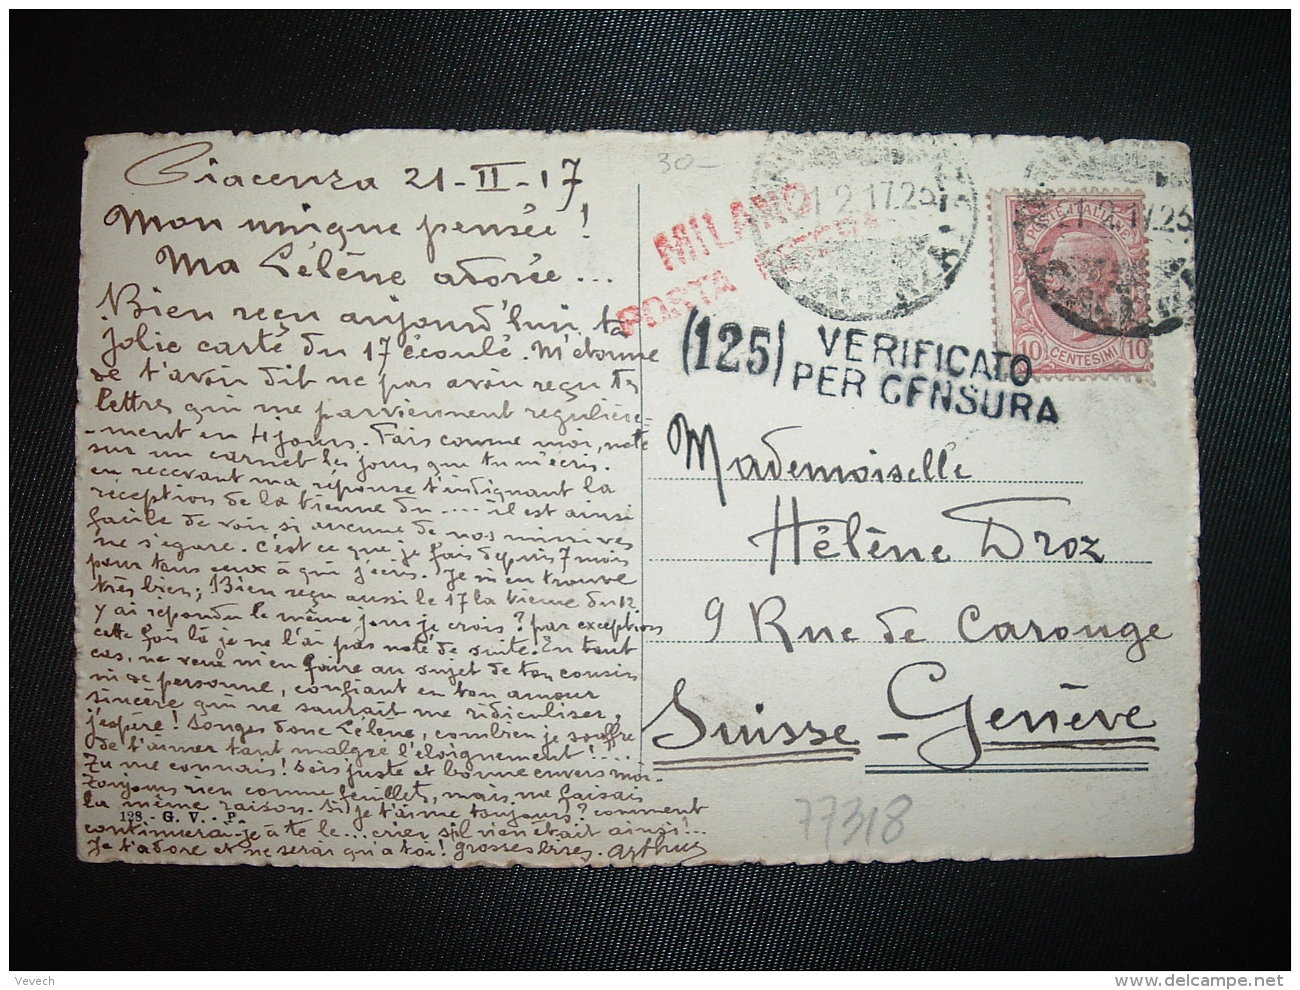 Piacenza 21-II-17
Mon unique pensée!
Ma Lélène adorée...
Bien reçu aujourd'hui ta
jolie carte du 17 écoulé. M'étonne
de t'avoir dit ne pas avoir reçu tes
lettres qui me parviennent régulière-
-ment en 4 jours. Fais comme moi, note
sur un carnet les jours que tu m'écris.
en recevant ma réponse t'indiquant la
réception de la tienne du .... il est ainsi
facile de voir si aucune de nos missives
ne s'égare. C'est ce que je fais depuis 7 mois
pour tous ceux à qui j'écris. Je m'en trouve
très bien; Bien reçu aussi le 17 la tienne du 12
y ai répondu le même jour je crois? par exception
cette fois là je ne l'ai pas noté de suite. En tout
cas, ne veux m'en faire au sujet de ton cousin
ni de personne, confiant en ton amour
sincère qui ne saurait me ridiculiser,
j'espère! Songes donc Lélène, combien je souffre
de t'aimer tant malgré l'éloignement!...
Tu me connais! Sois juste et bonne envers moi-
Toujours rien comme feuillet, mais ne faisais
la même raison. Si je t'aime toujours? comment
128 - G. V. - P.
continuerai-je à te le... crier s'il n'en était ainsi?..
Je t'adore et ne serai qu'à toi! grosses bises. Arthur
30-
MILANO
POSTA ESTERA
1 2.17.25
PIACENZA
POSTE ITALIANE
10 CENTESIMI 10
(125) VERIFICATO
PER CENSURA
Mademoiselle
Hélène Droz
9 Rue de Carouge
Suisse - Genève
77318
Vevech
www.delcampe.net